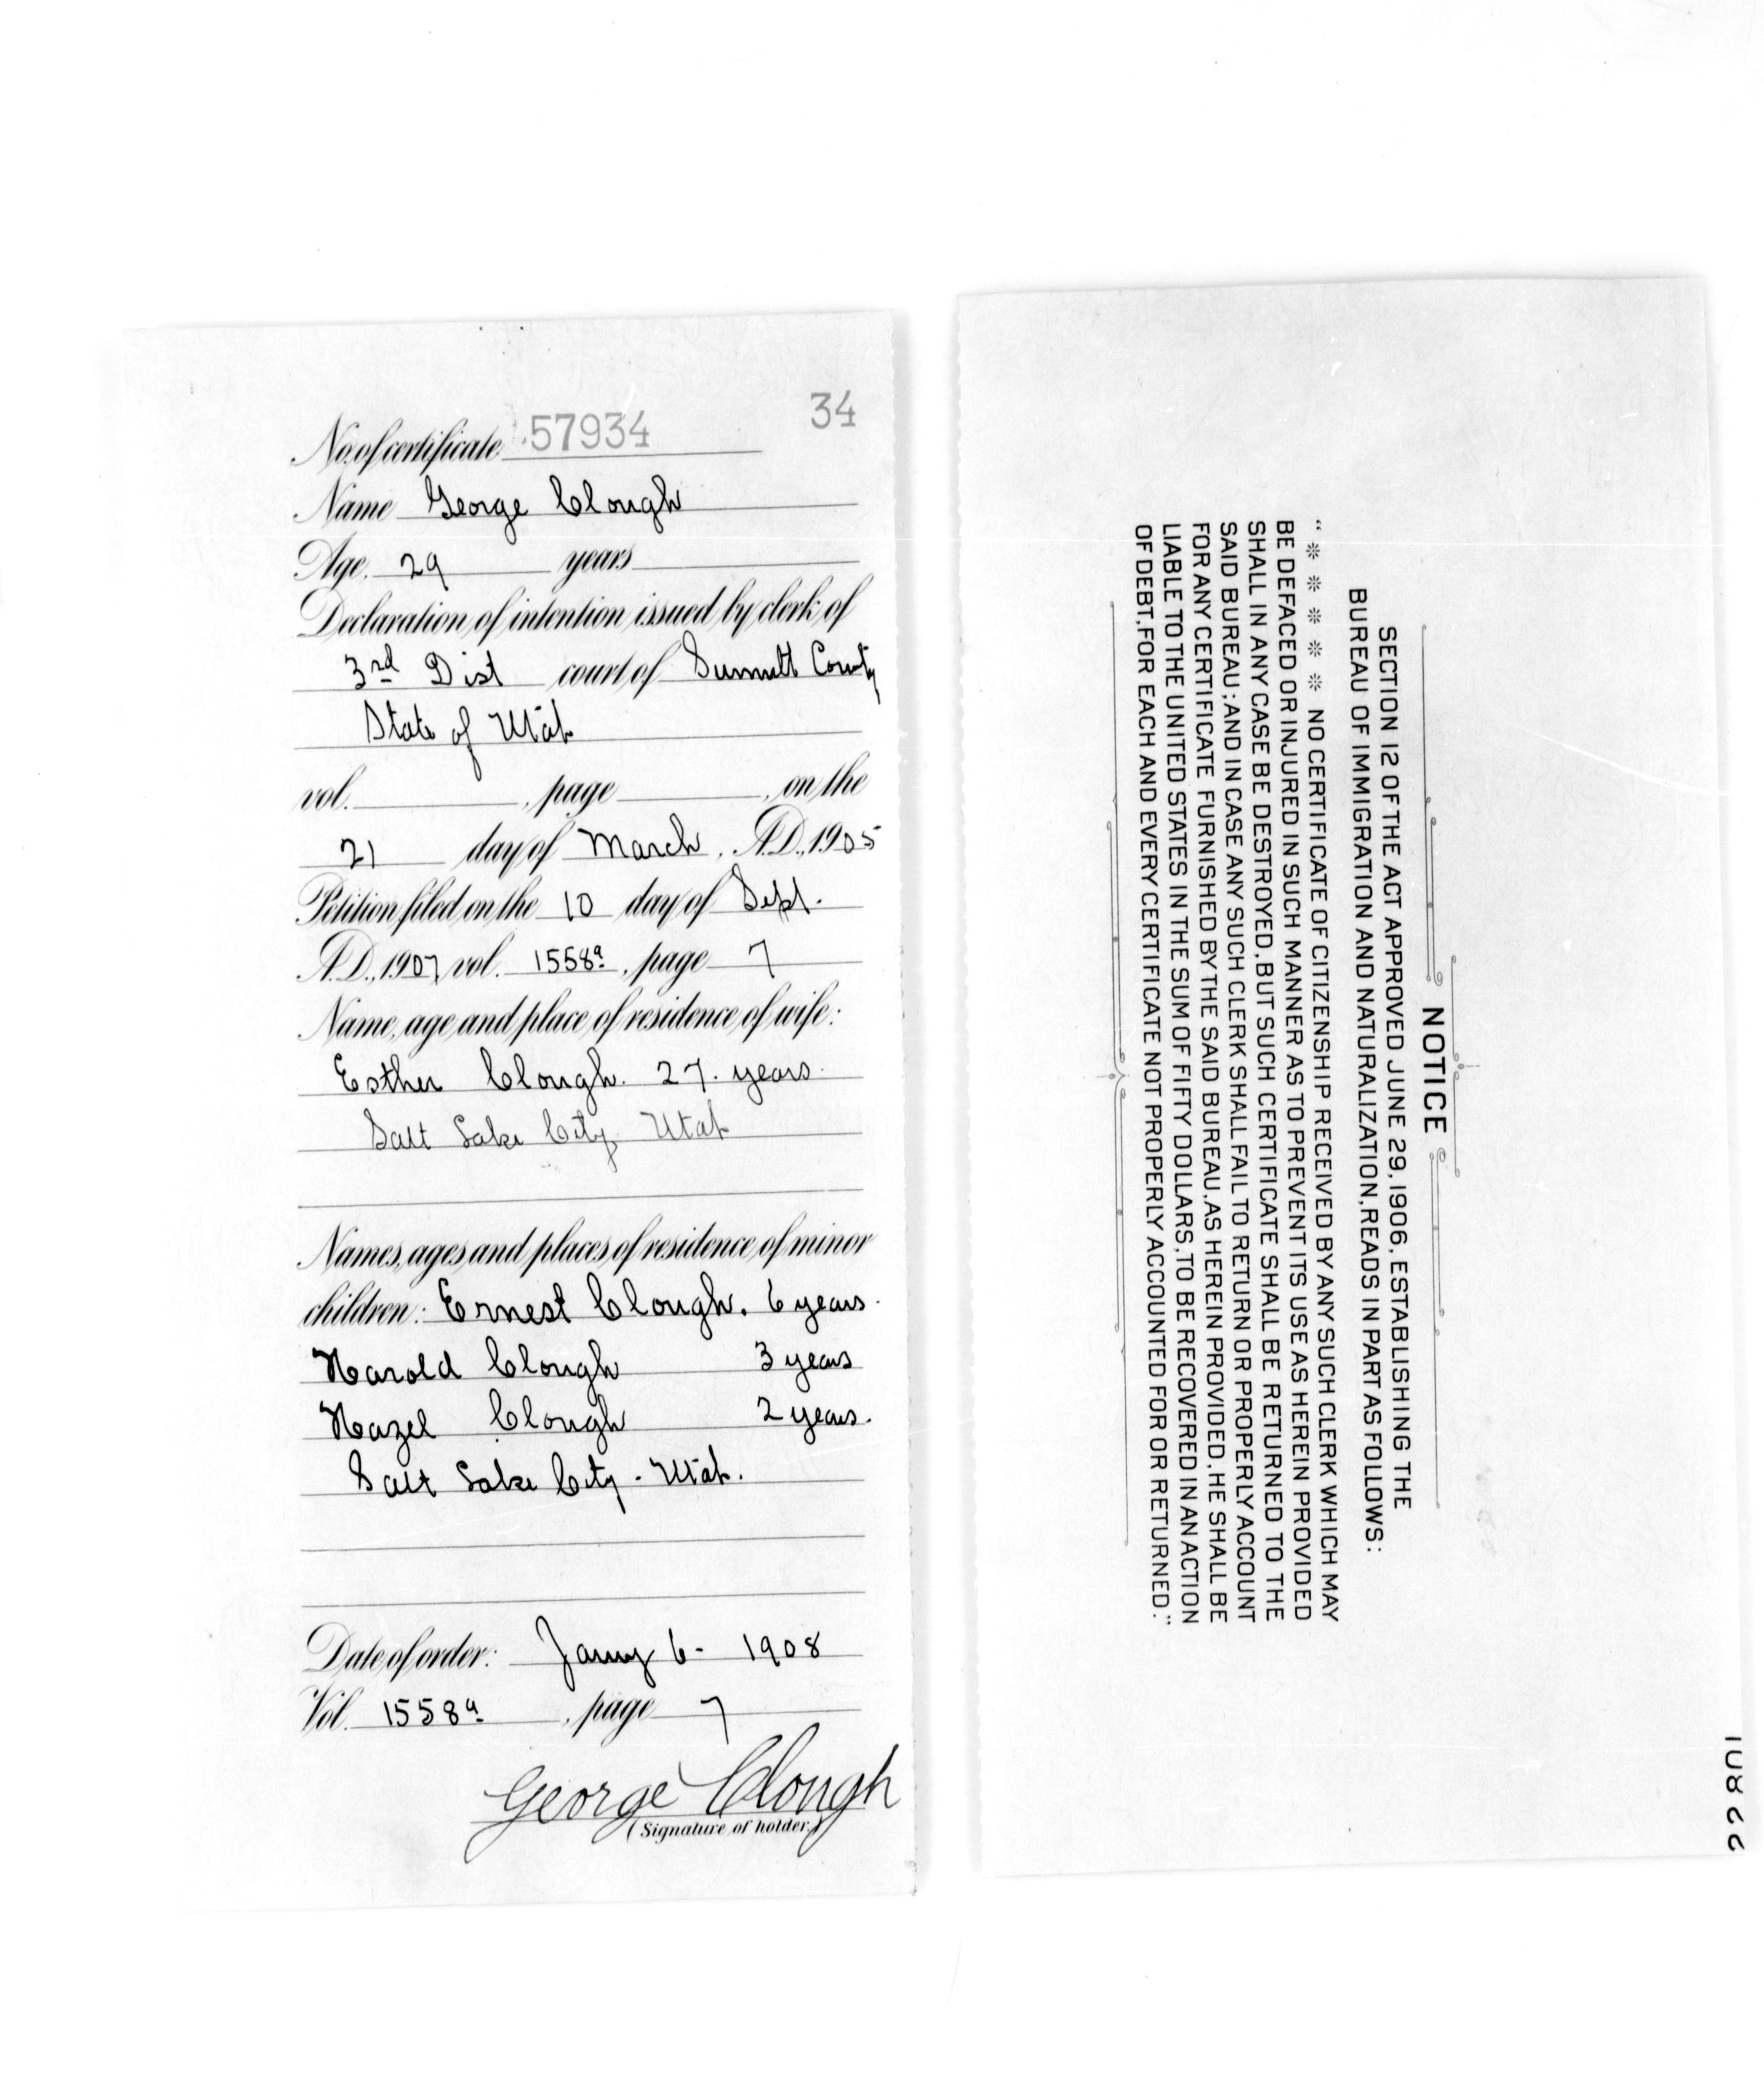 34
No. of certificate 57934
Name George Clough
Age. 29 years
Declaration of intention issued by clerk of
3rd Dist court of Summit County
State of Utah
vol. , page , on the
21 day of March, A.D., 1905
Petition filed on the 10 day of Sept.
A.D., 1907, vol. 1558a, page 7
Name, age and place of residence of wife:
Esther Clough. 27. years.
Salt Lake City, Utah
Names, ages and places of residence of minor
children: Ernest Clough. 6 years.
Harold Clough 3 years
Hazel Clough 2 years.
Salt Lake City - Utah.
Date of order: Jany 6 - 1908
Vol. 1558a, page 7
George Clough
(Signature of holder.)
NOTICE
SECTION 12 OF THE ACT APPROVED JUNE 29, 1906, ESTABLISHING THE
BUREAU OF IMMIGRATION AND NATURALIZATION, READS IN PART AS FOLLOWS:
"* * * * * NO CERTIFICATE OF CITIZENSHIP RECEIVED BY ANY SUCH CLERK WHICH MAY
BE DEFACED OR INJURED IN SUCH MANNER AS TO PREVENT ITS USE AS HEREIN PROVIDED
SHALL IN ANY CASE BE DESTROYED, BUT SUCH CERTIFICATE SHALL BE RETURNED TO THE
SAID BUREAU; AND IN CASE ANY SUCH CLERK SHALL FAIL TO RETURN OR PROPERLY ACCOUNT
FOR ANY CERTIFICATE FURNISHED BY THE SAID BUREAU, AS HEREIN PROVIDED, HE SHALL BE
LIABLE TO THE UNITED STATES IN THE SUM OF FIFTY DOLLARS, TO BE RECOVERED IN AN ACTION
OF DEBT, FOR EACH AND EVERY CERTIFICATE NOT PROPERLY ACCOUNTED FOR OR RETURNED."